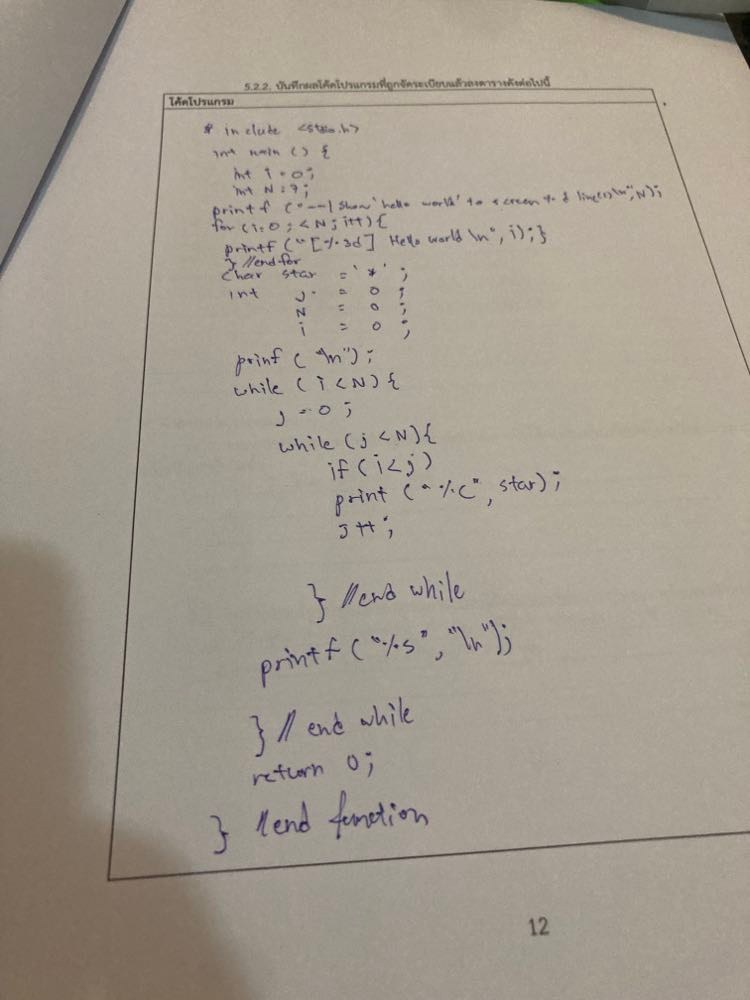 5.2.2. บันทึกผลโค้ดโปรแกรมที่ถูกจัดระเบียบแล้วลงตารางดังต่อไปนี้
โค้ดโปรแกรม
# include <stdio.h>
int main () {
int i = 0;
int N = 7;
printf ("--| Show 'hello world' to screen % d line(s)\n", N);
for (i=0 ; < N ; i++) {
printf ("[%3d] Hello world \n", i); }
} //endfor
char star = '*' ;
int j = 0 ;
N = 0 ;
i = 0 ;
prinf ( "\n") ;
while ( i < N) {
j = 0 ;
while (j < N) {
if (i < j)
print ("%c", star) ;
j ++ ;
} //end while
printf ("%s", "\n");
} // end while
return 0;
} //end function
12